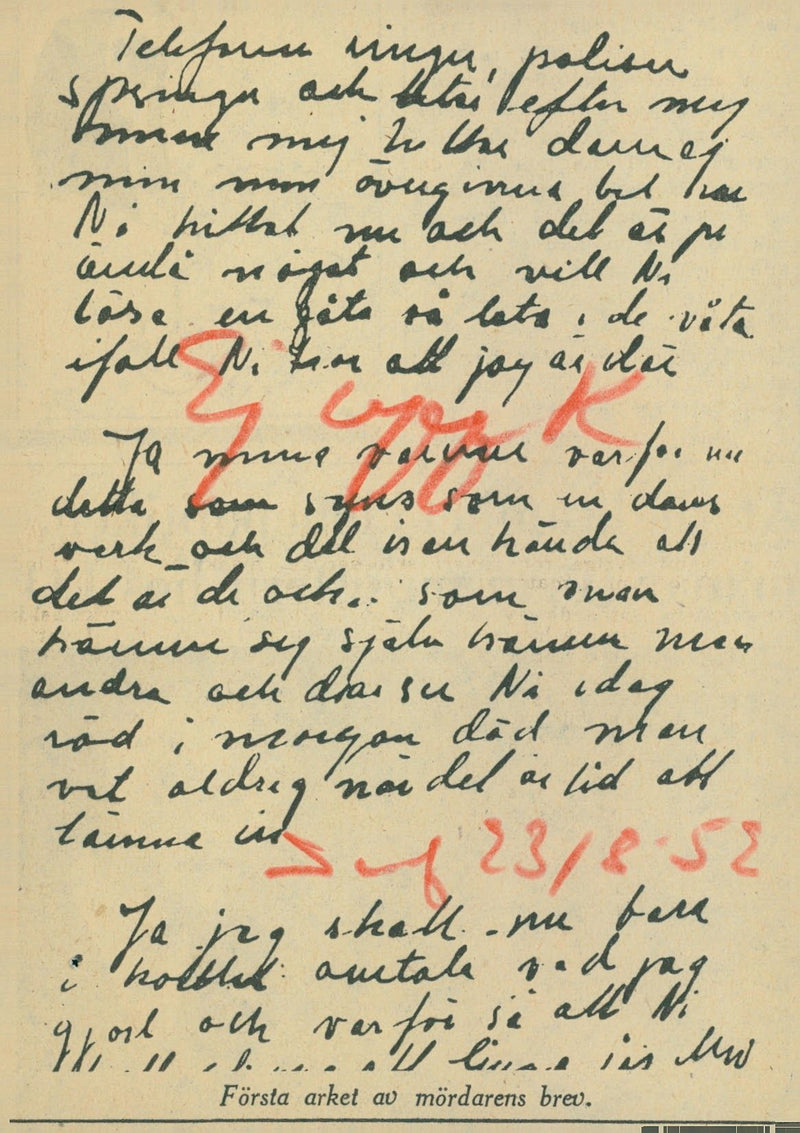 Telefonen ringer, polisen
springer och letar efter mig
men mej hittar dem ej
men min övergivna bil har
Ni hittat nu och det är ju
ändå något och vill Ni
lösa en gåta så leta i de våta
ifall Ni tror att jag är där
Ej K
Ja mina vänner varför nu
detta som syns som en dåres
verk och det kan hända att
det är de och.. som man
känner sig själv känner man
andra och där ser Ni idag
röd i morgon död man
vet aldrig när det är tid att
lämna in
23/8-52
Ja jag skall nu bara
i korthet omtala vad jag
gjort och varför så att Ni
att
Första arket av mördarens brev.